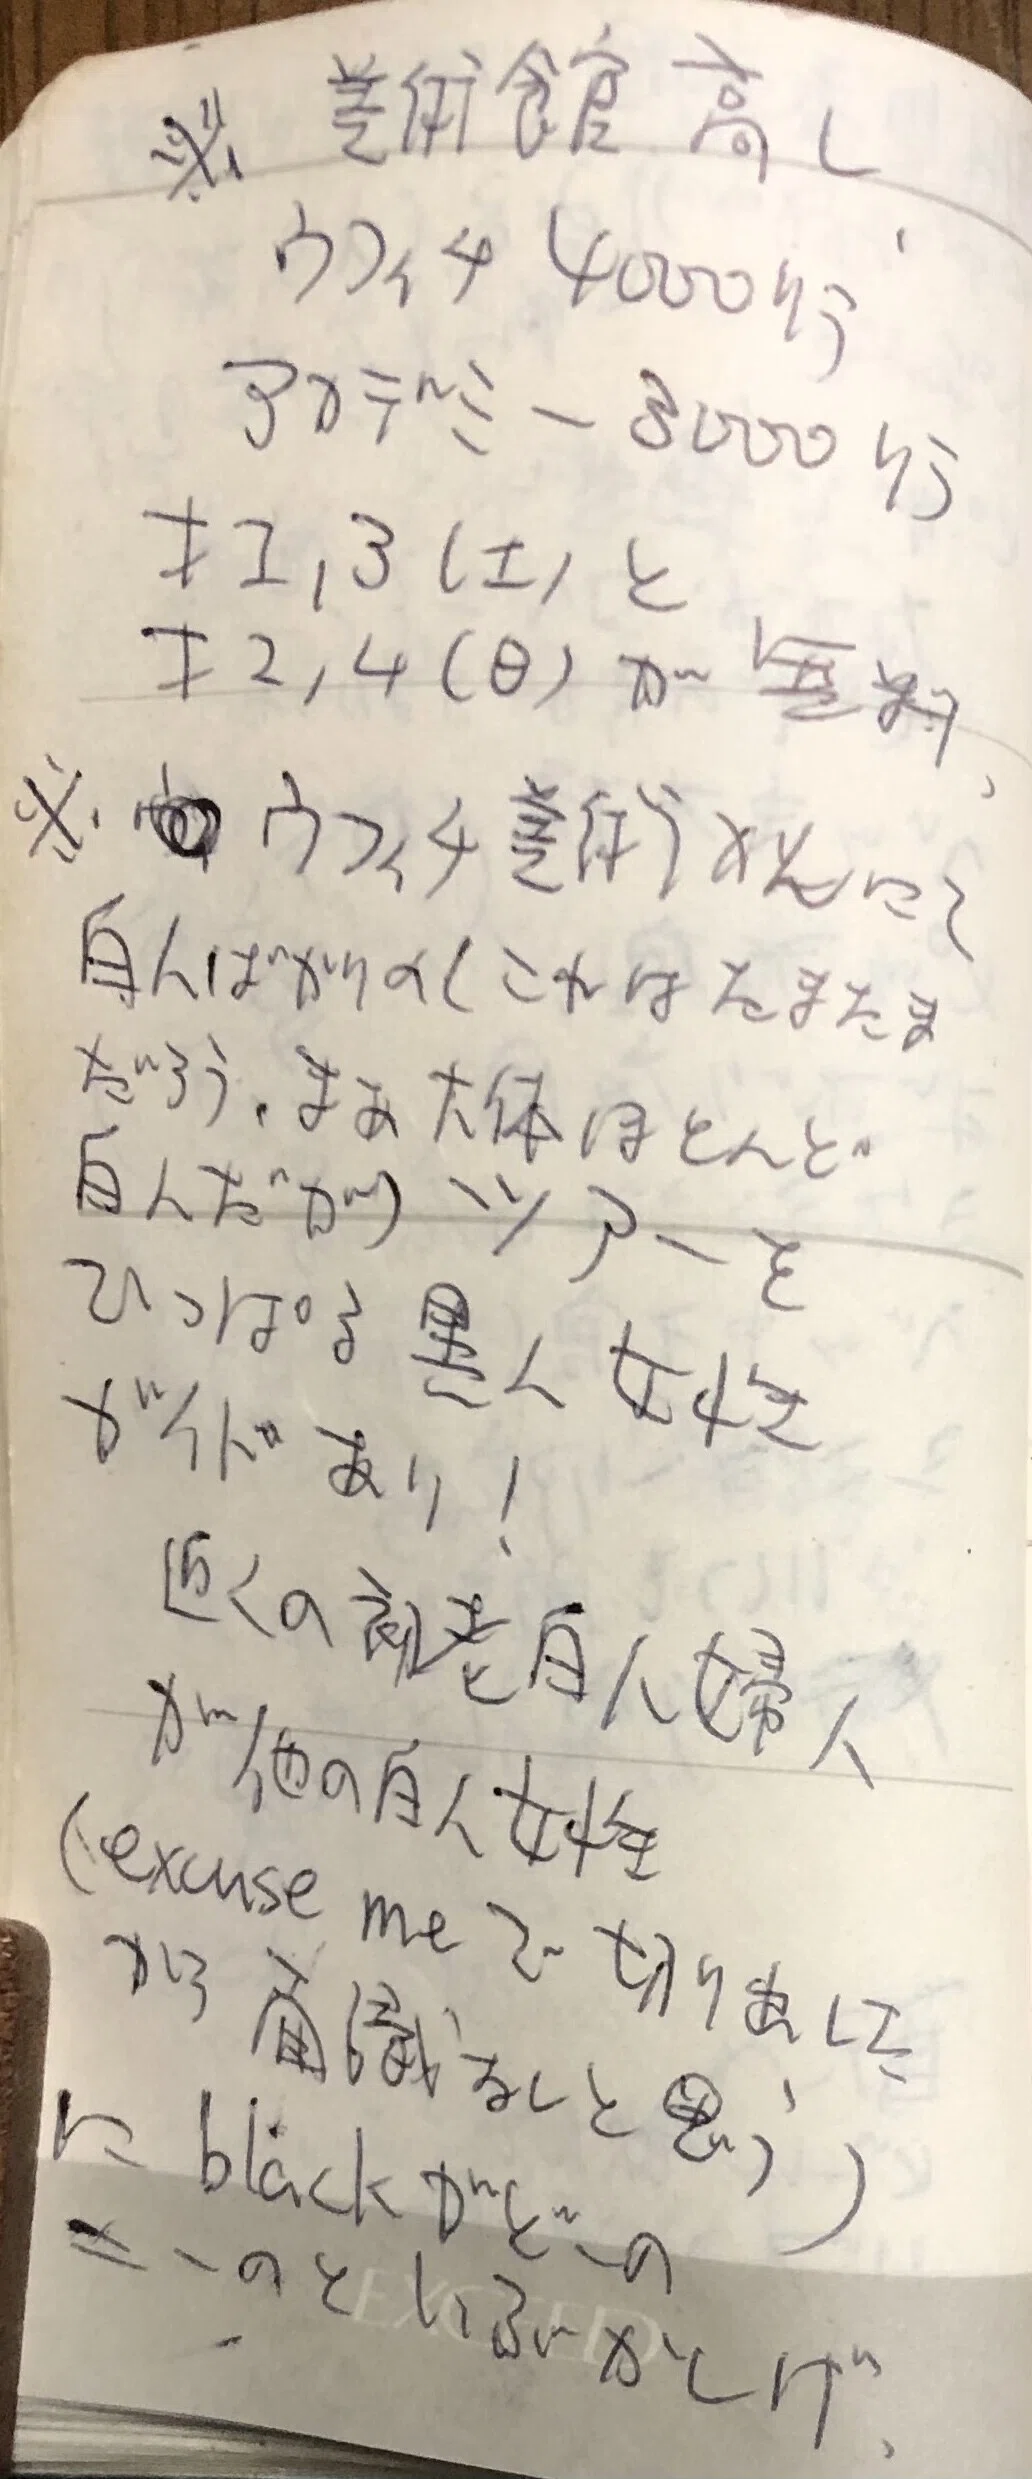 ※ 美術館高し
ウフィチ 4000リラ
アカデミー 8000リラ
オ1,3(土)と
オ2,4(日)が
※. ウフィチ美術かんにて
白人ばかりの(これはたまたま
だろう。まあ大体ほとんど
白人だが)ツアーを
ひっぱる黒人女性
ガイドあり!
近くの初老白人婦人
が他の白人女性
(excuse me で切りだした
から面識ないと思う)
に blackがどーの
こーのといぶかしげ、
EXCEED